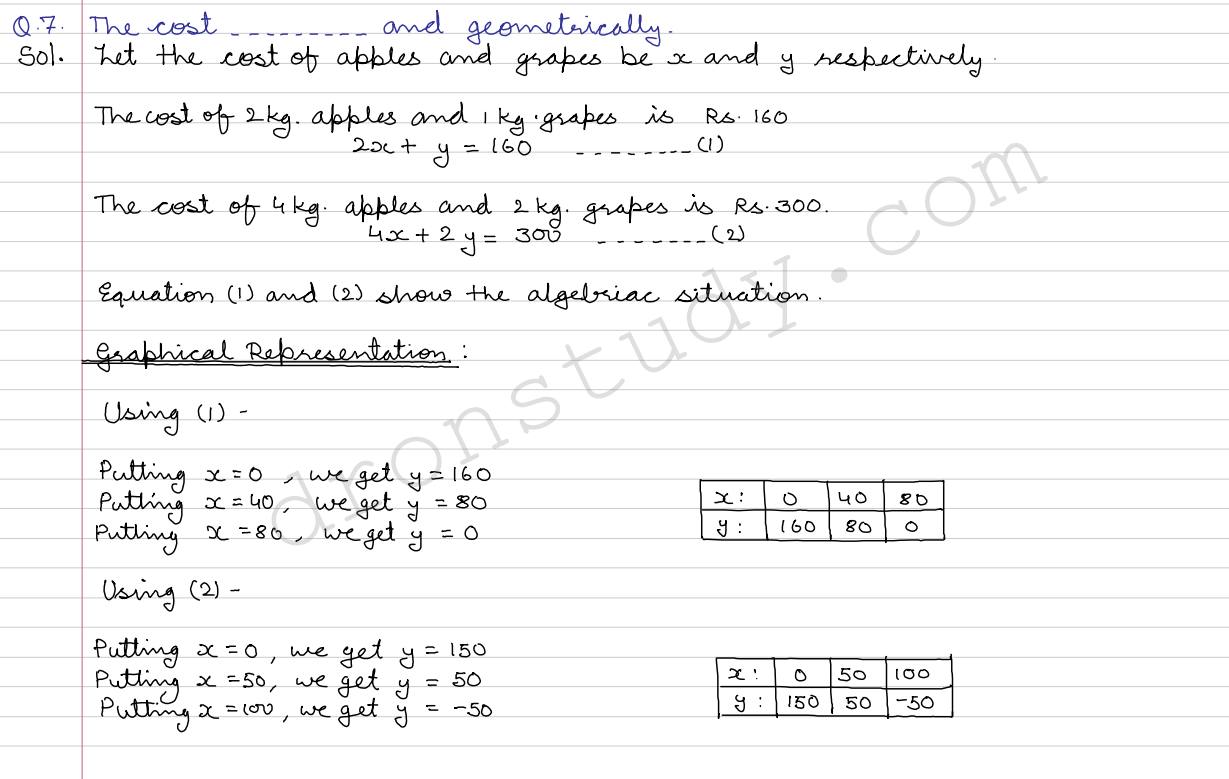 Q.7. The cost --------- and geometrically.
Sol. Let the cost of apples and grapes be x and y respectively.
The cost of 2 kg. apples and 1 kg. grapes is Rs. 160
2x + y = 160 --------- (1)
The cost of 4 kg. apples and 2 kg. grapes is Rs. 300.
4x + 2y = 300 -------- (2)
Equation (1) and (2) show the algebriac situation.
Graphical Representation :
Using (1) -
Putting x = 0 , we get y = 160
Putting x = 40, we get y = 80
Putting x = 80, we get y = 0
x : 0 40 80
y : 160 80 0
Using (2) -
Putting x = 0, we get y = 150
Putting x = 50, we get y = 50
Putting x = 100, we get y = -50
x : 0 50 100
y : 150 50 -50
dronstudy.com